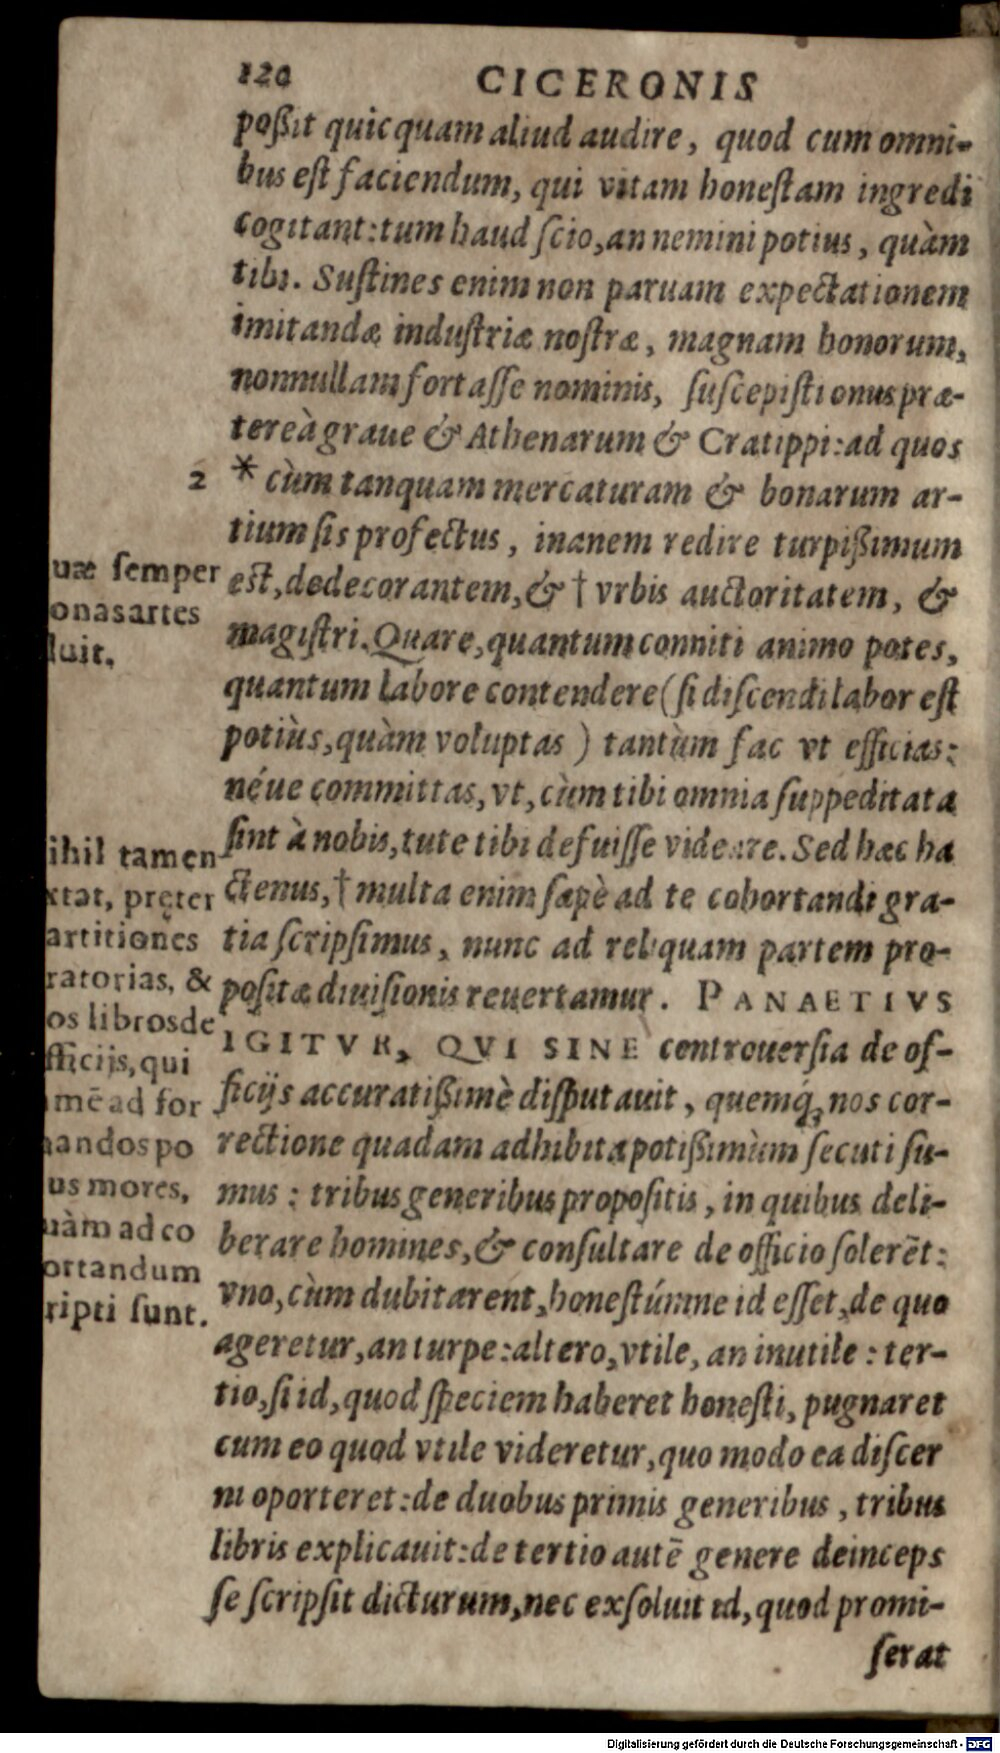 120 CICERONIS
poßit quicquam aliud audire, quod cum omni-
bus eſt faciendum, qui vitam honeſtam ingredi
cogitant:tum haud ſcio,an nemini potius, quàm
tibi. Suſtines enim non paruam expectationem
imitandæ induſtriæ noſtræ, magnam honorum,
nonnullam fortaſſe nominis, ſuſcepiſti onus præ-
tereà graue & Athenarum & Cratippi:ad quos
2 * cùm tanquam mercaturam & bonarum ar-
tium ſis profectus, inanem redire turpißimum
eſt,dedecorantem,& † vrbis auctoritatem, &
magiſtri.Quare,quantum conniti animo potes,
quantum labore contendere(ſi diſcendi labor eſt
potiùs,quàm voluptas ) tantùm fac vt efficias:
néue committas,vt,cùm tibi omnia ſuppeditata
ſint à nobis,tute tibi defuiſſe videare.Sed hæc ha
ctenus,† multa enim ſæpè ad te cohortandi gra-
tia ſcripſimus, nunc ad reliquam partem pro-
poſitæ diuiſionis reuertamur. PANAETIVS
IGITVR, QVI SINE controuerſia de of-
ficijs accuratißimè diſputauit, quemq́; nos cor-
rectione quadam adhibita potißimùm ſecuti ſu-
mus : tribus generibus propoſitis, in quibus deli-
berare homines,& conſultare de officio ſolerēt:
vno,cùm dubitarent,honeſtúmne id eſſet,de quo
ageretur,an turpe:altero,vtile, an inutile : ter-
tio,ſi id,quod ſpeciem haberet honeſti, pugnaret
cum eo quod vtile videretur,quo modo ea diſcer
ni oporteret:de duobus primis generibus, tribus
libris explicauit:de tertio autē genere deinceps
ſe ſcripſit dicturum,nec exſoluit id,quod promi-
ſerat
uæ ſemper
onas artes
luit.
ihil tamen
xtat, pręter
artitiones
ratorias, &
os libros de
fficijs, qui
mē ad for
nandos po
us mores,
uàm ad co
ortandum
ripti ſunt.
Digitalisierung gefördert durch die Deutsche Forschungsgemeinschaft - DFG